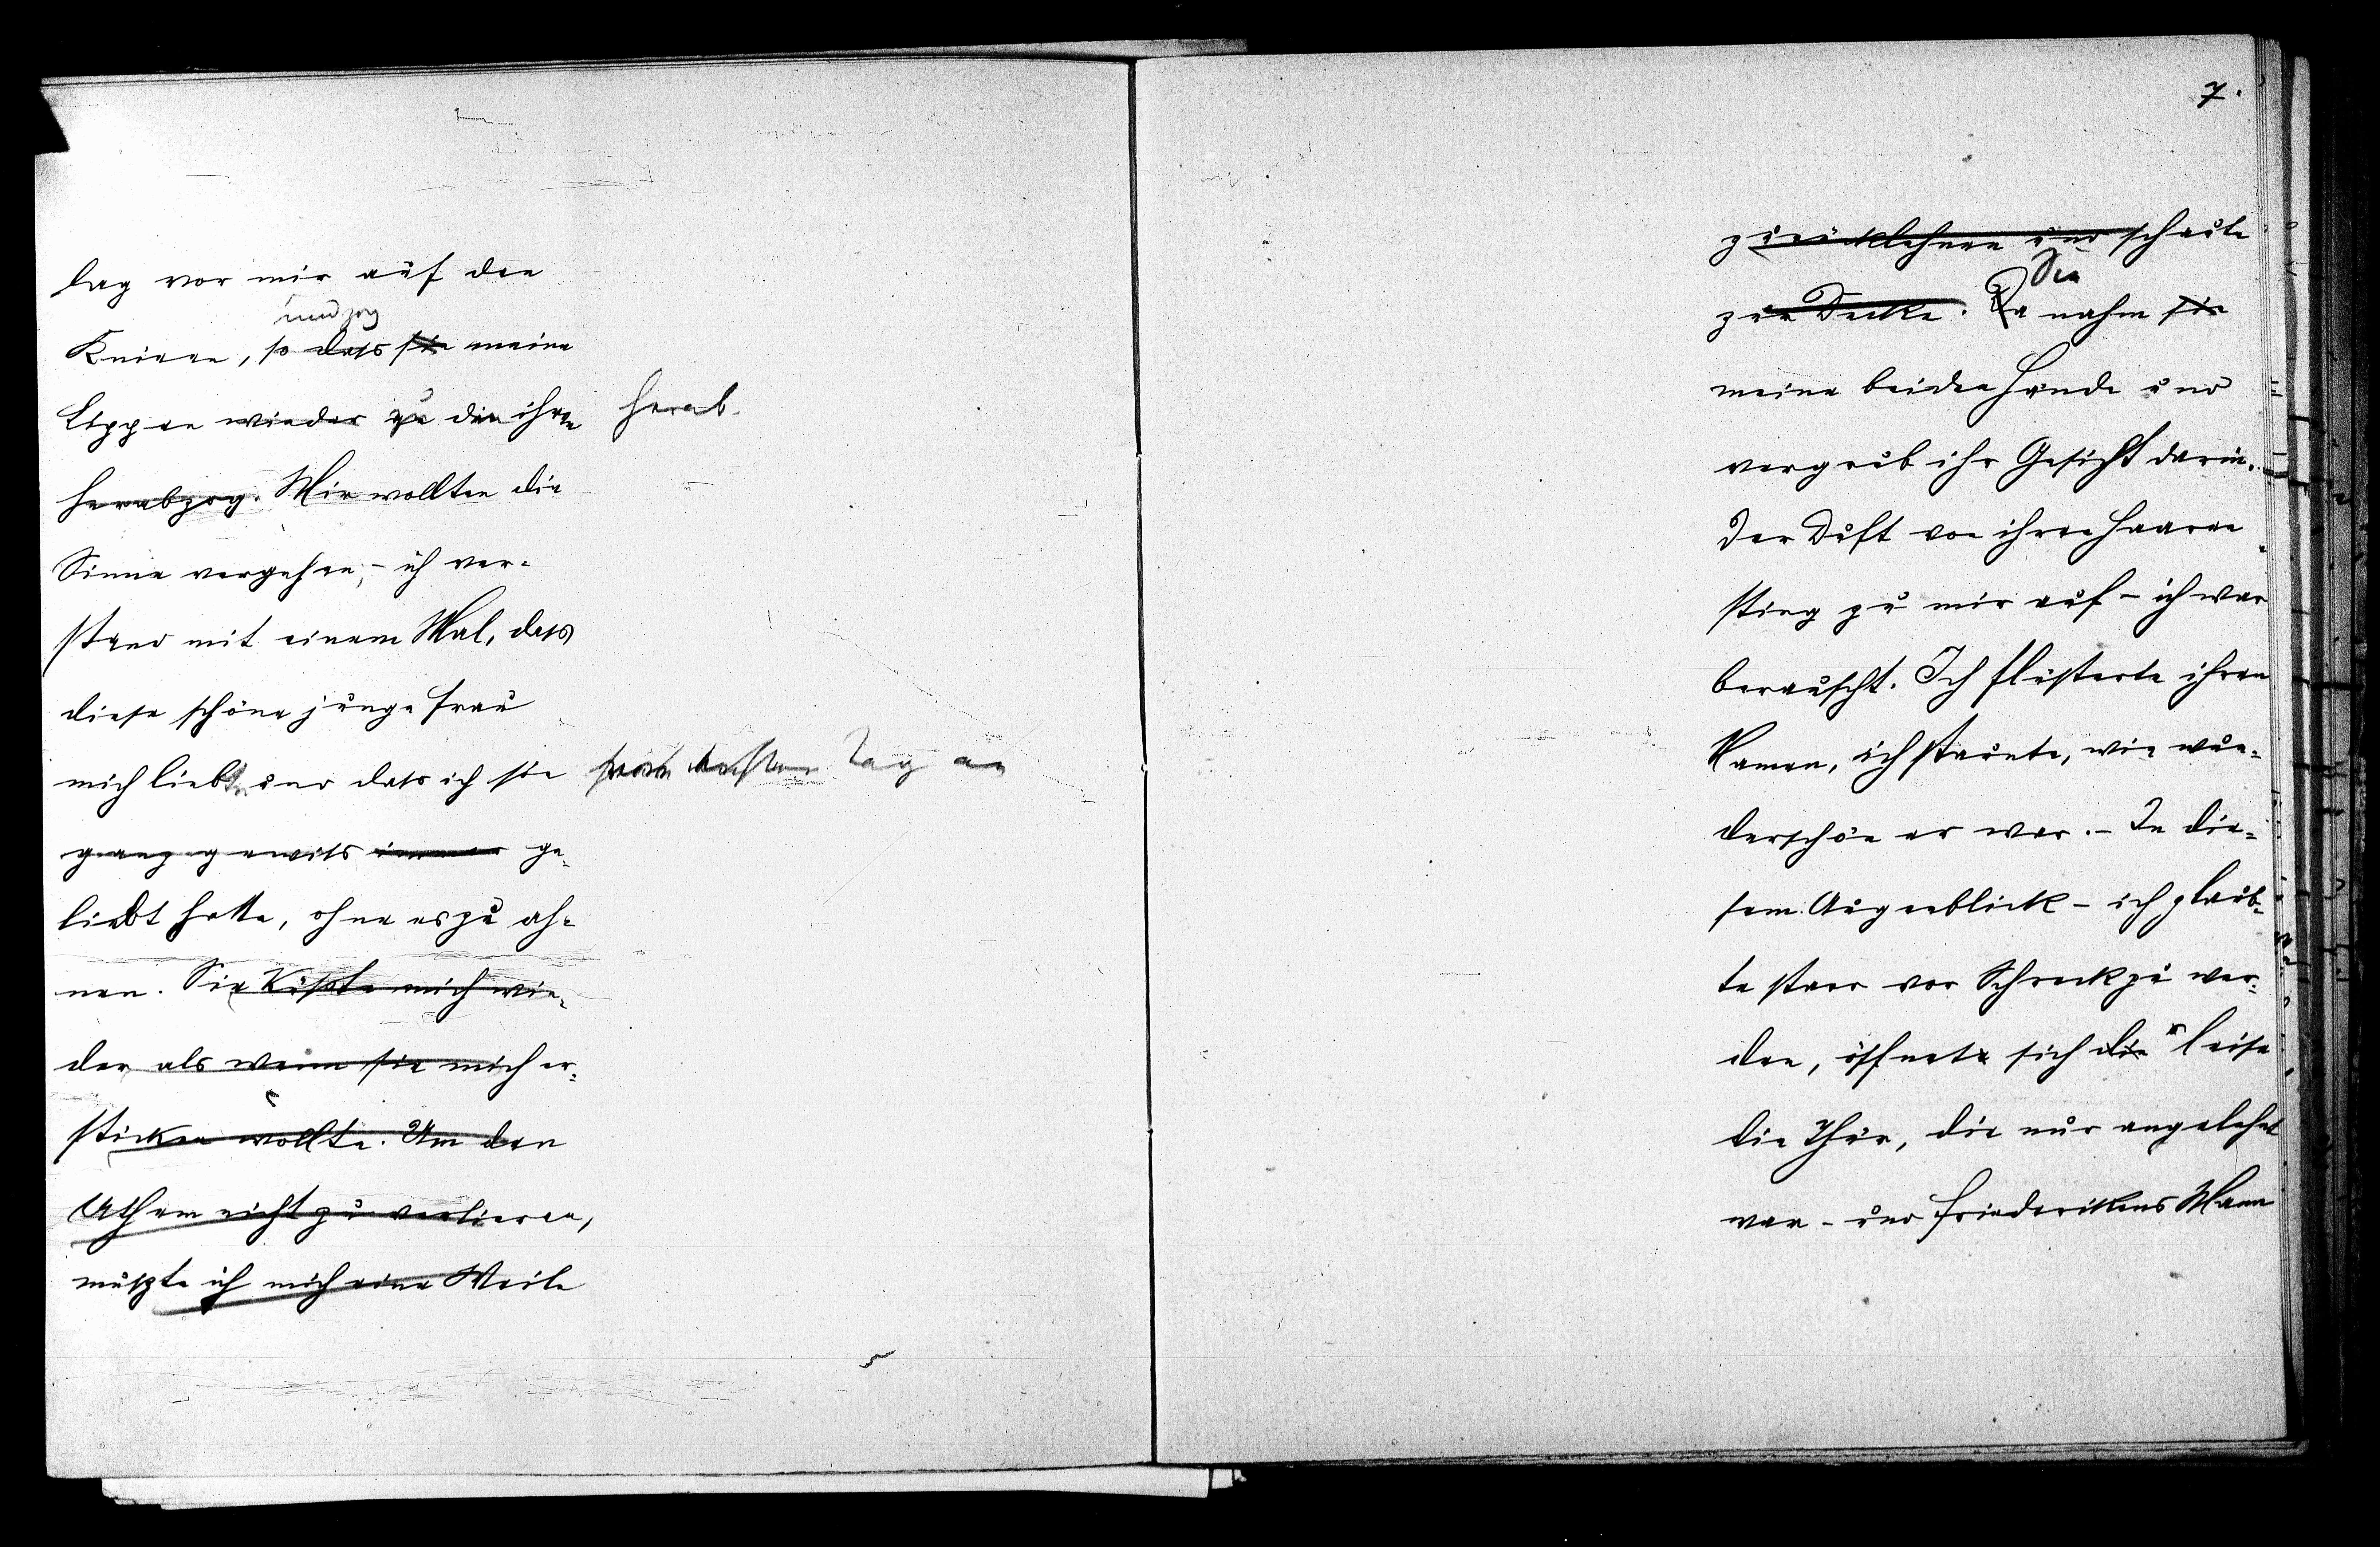 lag vor mir auf den
und zog
Knieen, so dass sie meine
Lippen wieder zu den ihren herab.
herabzog. Mir wollten die
Sinne vergehen, – ich ver-
stand mit einem Mal, dass
diese schöne junge Frau
mich liebte und dass ich sie vom ersten Tag an
ganz gewiss immer ge-
liebt hatte, ohne es zu ah-
nen. Sie küsste mich wie-
der als wenn sie mich er-
sticken wollte. Um den
Athem nicht zu verlieren,
musste ich mich eine Weile
7.
zurücklehnen und schaute
Sie
zur Decke. Da nahm sie
meine beiden Hände und
vergrub ihr Gesicht darin.
Der Duft von ihren Haaren
stieg zu mir auf – ich war
berauscht. Ich flüsterte ihren
Namen, ich staunte, wie wun-
derschön er war. – In die-
sem Augenblick – ich glaub-
te starr vor Schreck zu wer-
den, öffnete sich die leise
die Thür, die nur angelehnt
war – und Friederikens Mann